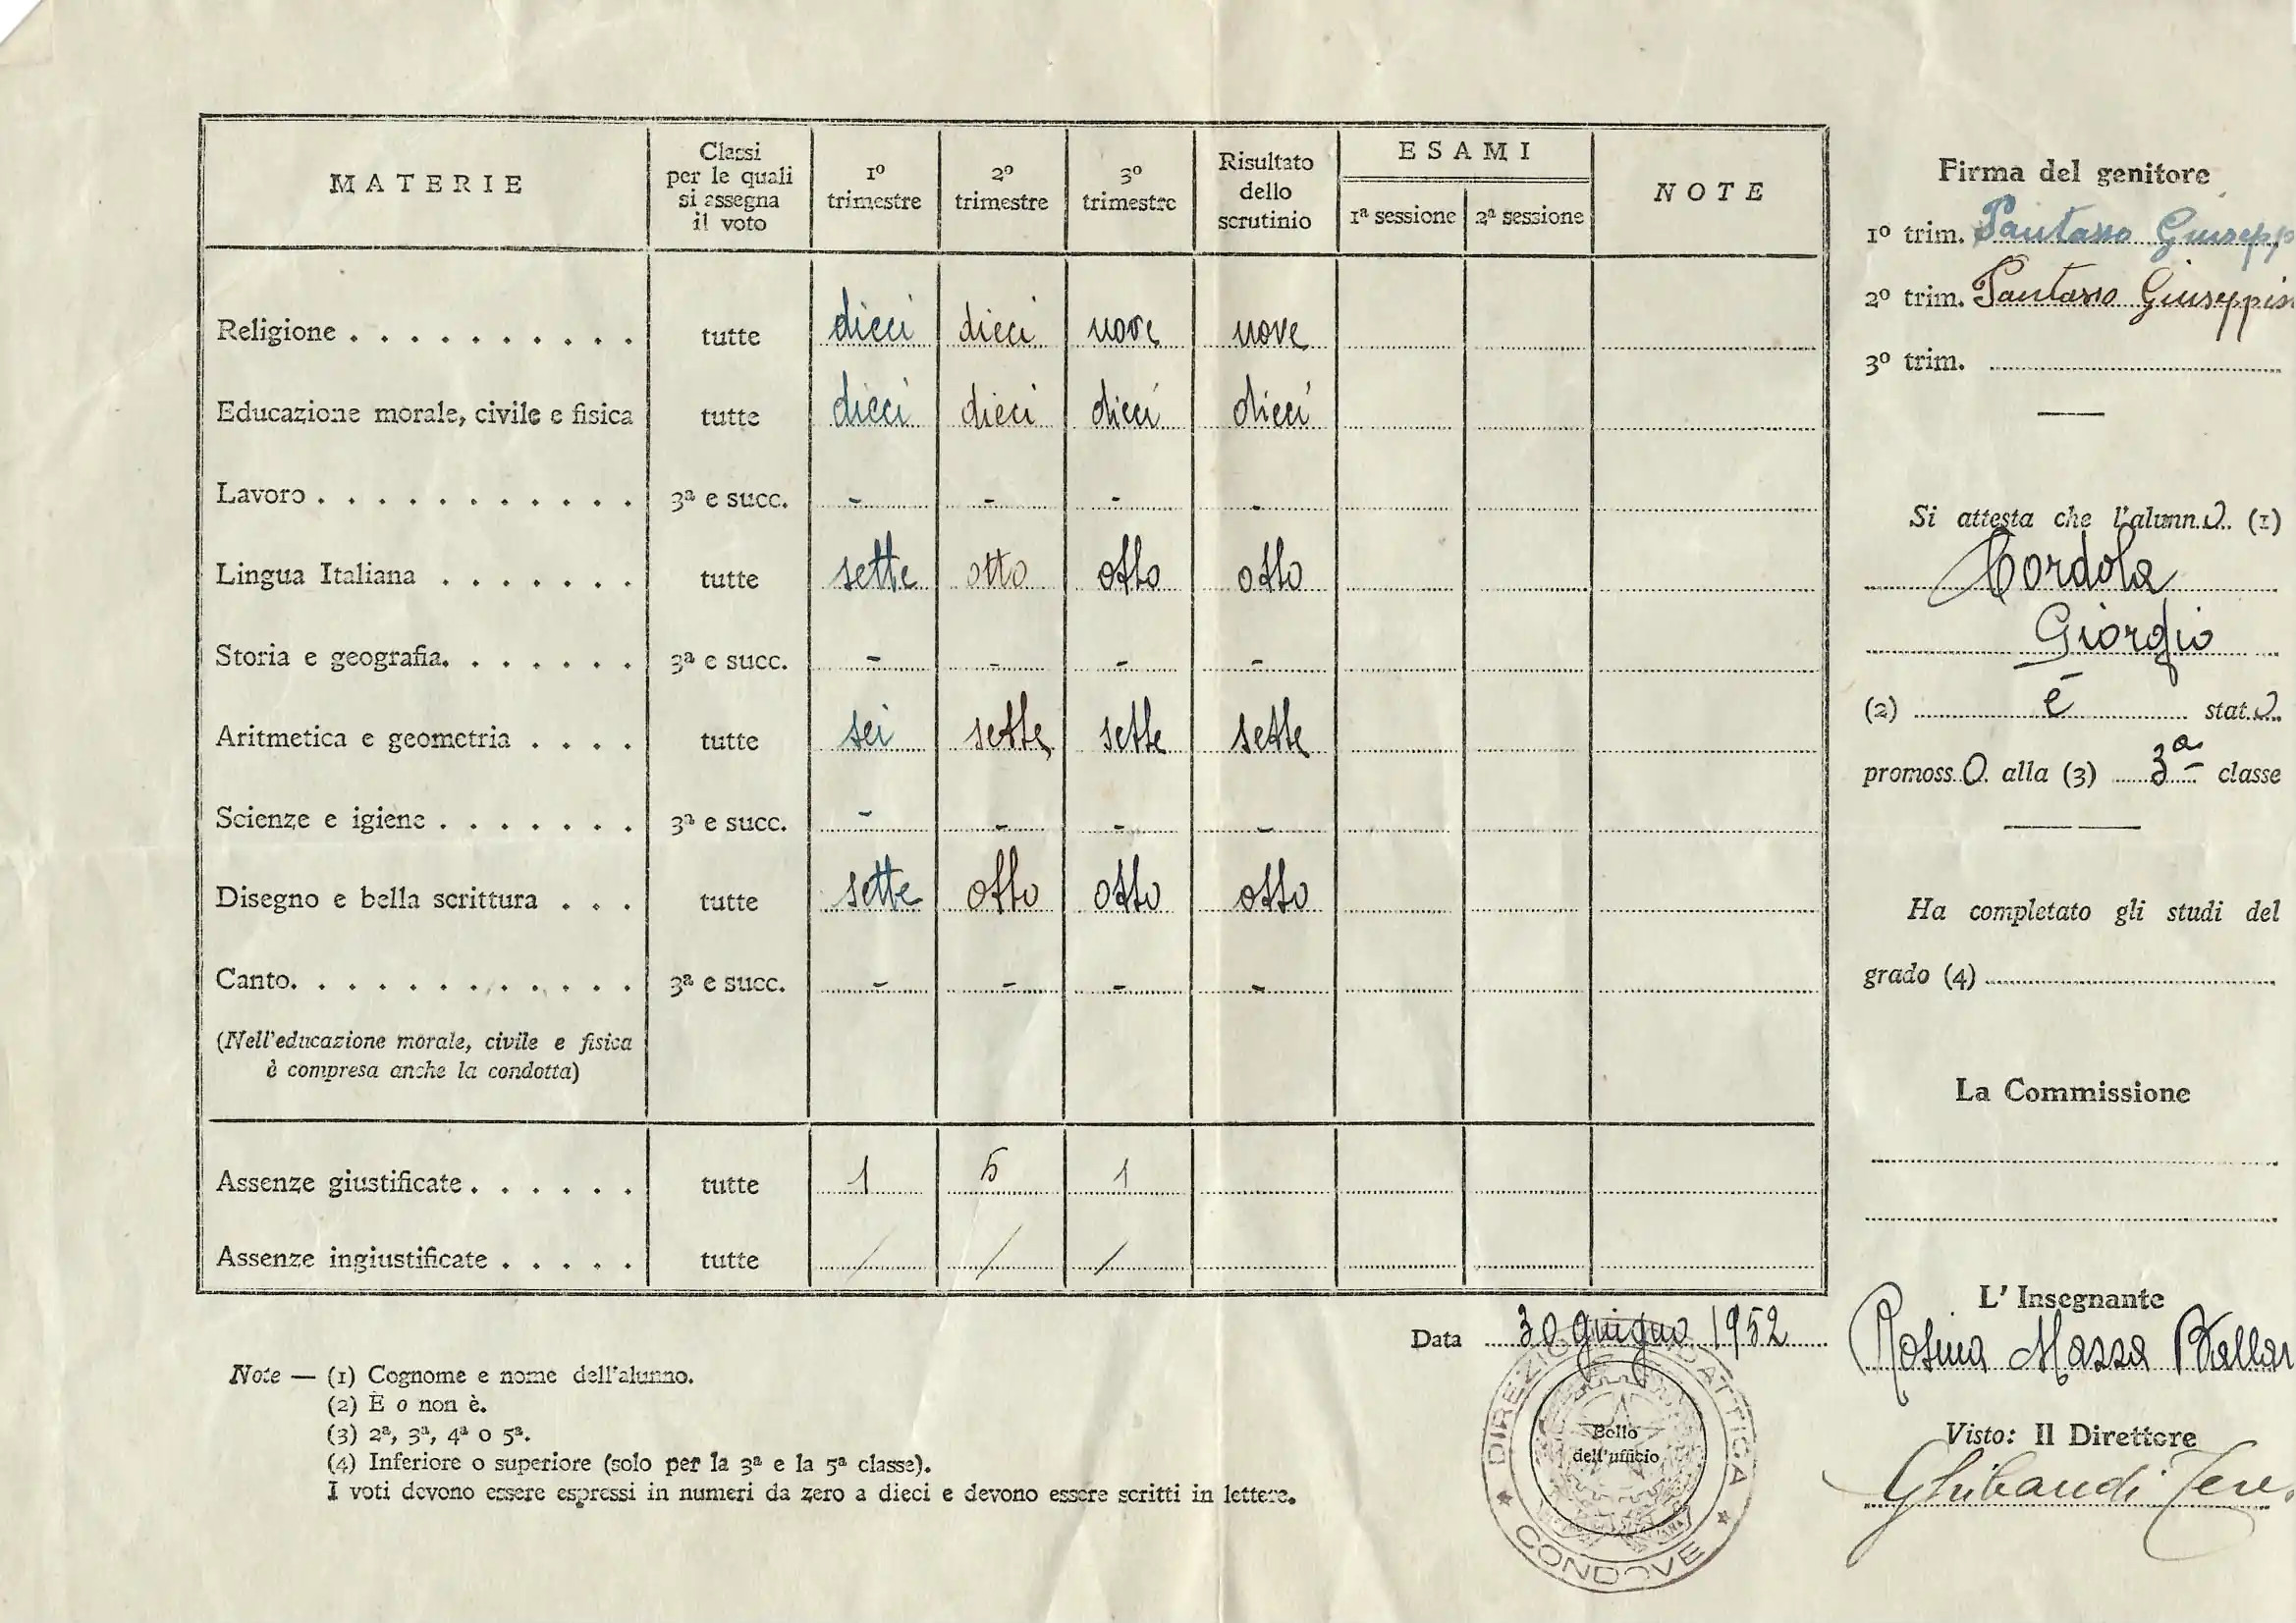 MATERIE
Classi
per le quali
si assegna
il voto
1º
trimestre
2º
trimestre
3º
trimestre
Risultato
dello
scrutinio
ESAMI
1ª sessione
2ª sessione
NOTE
Religione tutte dieci dieci nove nove
Educazione morale, civile e fisica tutte dieci dieci dieci dieci
Lavoro 3ª e succ. - - - -
Lingua Italiana tutte sette otto otto otto
Storia e geografia. 3ª e succ. - - - -
Aritmetica e geometria tutte sei sette sette sette
Scienze e igiene 3ª e succ. - - - -
Disegno e bella scrittura tutte sette otto otto otto
Canto. 3ª e succ. - - - -
(Nell'educazione morale, civile e fisica
è compresa anche la condotta)
Assenze giustificate tutte 1 5 1
Assenze ingiustificate tutte / / /
Note — (1) Cognome e nome dell'alunno.
(2) È o non è.
(3) 2ª, 3ª, 4ª o 5ª.
(4) Inferiore o superiore (solo per la 3ª e la 5ª classe).
I voti devono essere espressi in numeri da zero a dieci e devono essere scritti in lettere.
Data 30 giugno 1952
DIREZIONE DIDATTICA
CONDOVE
Bollo
dell'ufficio
Firma del genitore
1º trim. Pautasso Giusepp
2º trim. Pautasso Giuseppin
3º trim.
Si attesta che l'alunno (1)
Cordola
Giorgio
(2) è stato
promosso alla (3) 3ª classe
Ha completato gli studi del
grado (4)
La Commissione
L'Insegnante
Rosina Massa
Visto: Il Direttore
Ghibaudi